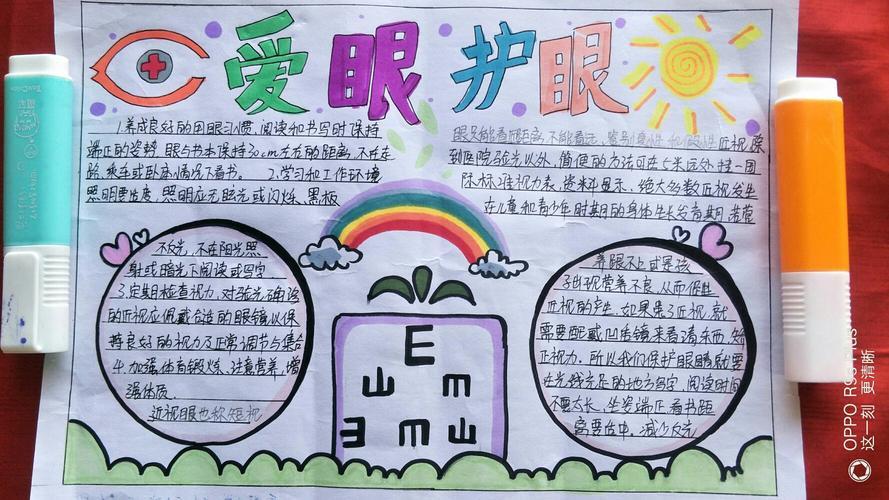 爱眼护眼
1.养成良好的用眼习惯，阅读和书写时保持
端正的姿势，眼与书本保持30cm左右的距离，不在走
路、乘车或卧床情况下看书。 2.学习和工作环境
照明要适度，照明应无眩光或闪烁，黑板
不反光，不在阳光照
射或暗光下阅读或写字
3.定期检查视力，对验光确诊
的近视应佩戴合适的眼镜以保
持良好的视力及正常调节与集合
4.加强体育锻炼，注意营养，增
强体质。
近视眼也称短视
眼只能看近距离，不能看远，鉴别真性和假性近视，除
到医院验光以外，简便的方法可在5米远处挂一国
际标准视力表，资料显示，绝大多数近视发生
在儿童和青少年时期的身体生长发育期，若营
养跟不上或是孩
子出现营养不良，从而促进
近视的产生，如果患了近视，就
需要配戴凹透镜来看清东西，矫
正视力，所以我们保护眼睛就要
在光线充足的地方写字，阅读时间
不要太长，坐姿端正，看书距
离要适中，减少反光
E
E
E
E
E
E
OPPO R9s Plus
这一刻 更清晰